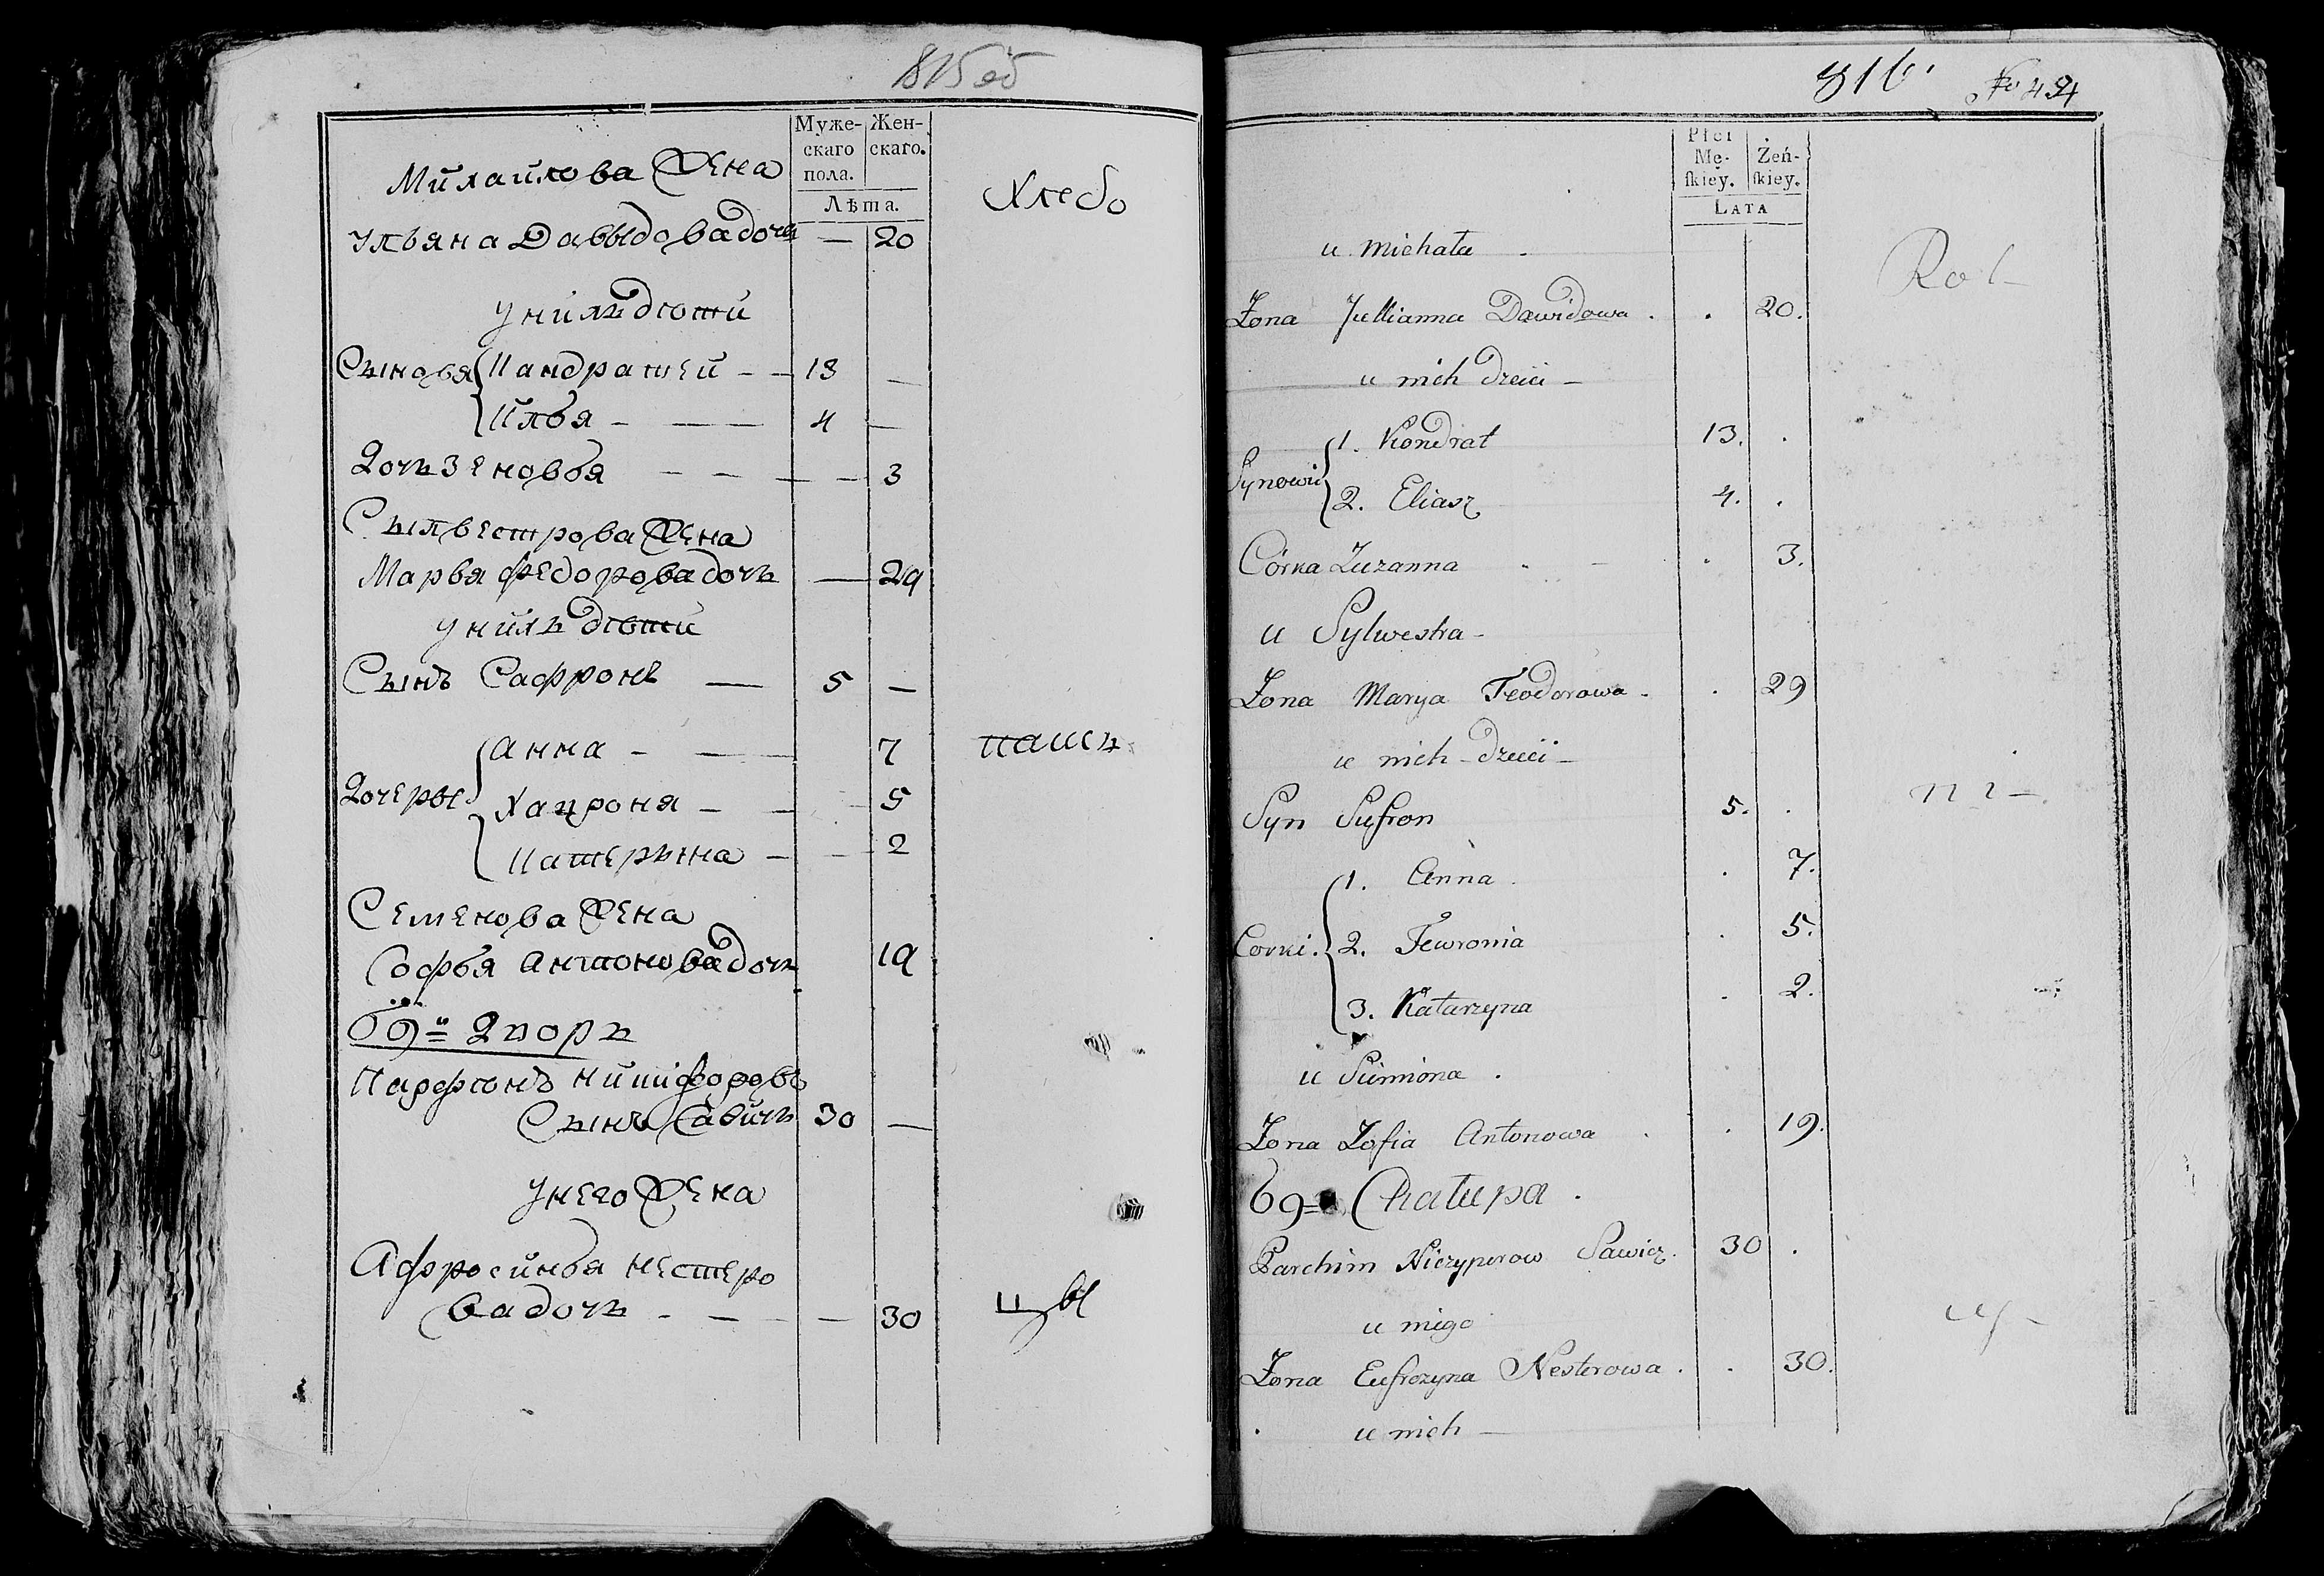 815 об
Муже-
скаго
пола.
Жен-
скаго.
Лѣта.
Михайлова Жена
Ульяна Давыдова дочь — 20
Хлебо
у нихъ дѣти
Сыновя Кандратей — — 13 —
Илья — — — 4 —
Дочь Зеновья — — — — 3
Сылвестрова Жена
Марья Федорова дочь — 29
у нихъ дѣти
Сынъ Сафронъ — 5 —
Дочеры
Анна — — 7
пашъ
Хацроня — — — 5
Катерына — — 2
Семенова Жена
Софья Антонова дочь 19
69й Дворъ
Парфенъ Никифоровъ
Сынъ Савичъ 30 —
У него Жена
Афросинья Нестеро
ва дочь — — — 30
цы
816
No 434
Płci
Mę-
ſkiey.
Żeń-
ſkiey.
LATA
u Michała
Rol—
Żona Jullianna Dawidowa . . 20.
u nich dzieci —
Synowie
1. Kondrat 13. .
2. Eliasz 4. .
Córka Zuzanna . 3.
u Sylwestra —
Żona Marya Teodorowa . 29
u nich dzieci —
Syn Sufron 5. .
ni—
Corki.
1. Anna . 7.
2. Fewronia . 5.
3. Katarzyna . 2.
u Simiona .
Żona Zofia Antonowa . 19.
69= Chałupa .
Parchim Niczyperow Sawicz. 30 .
u niego
cy—
Żona Eufrozyna Nesterowa . . 30.
u nich —